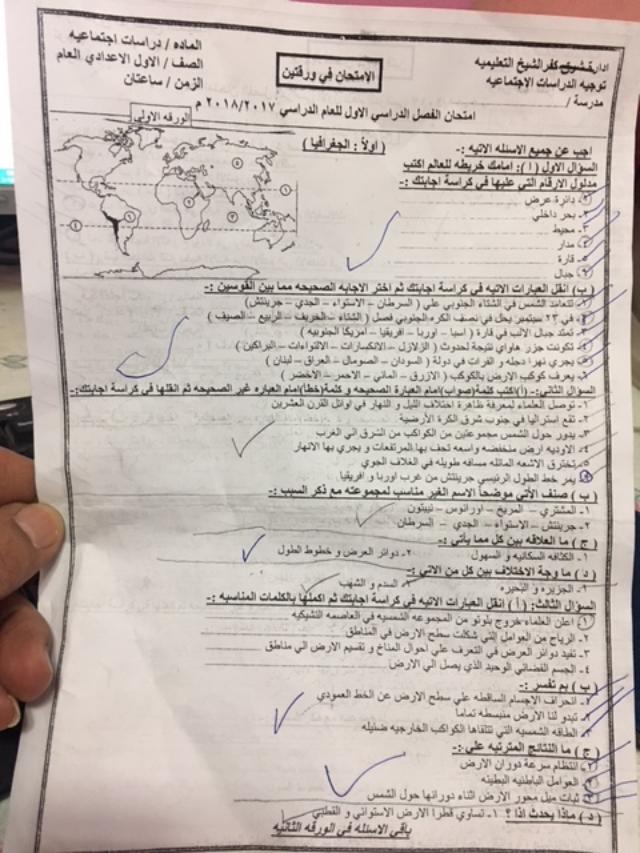 ادارة شرق كفر الشيخ التعليميه
توجيه الدراسات الاجتماعيه
مدرسة /
الامتحان في ورقتين
الماده / دراسات اجتماعيه
الصف / الاول الاعدادي العام
الزمن / ساعتان
امتحان الفصل الدراسي الاول للعام الدراسي ٢٠١٨/٢٠١٧ م
الورقه الاولي
اجب عن جميع الاسئله الاتيه :-
(اولاً : الجغرافيا )
السؤال الاول ( ا ): امامك خريطه للعالم اكتب
مدلول الارقام التي عليها في كراسة اجابتك :-
١- دائرة عرض
٢- بحر داخلي
٣- محيط
٤- مدار
٥- قارة
٦- جبال
(ب ) انقل العبارات الاتيه في كراسة اجابتك ثم اختر الاجابه الصحيحه مما بين القوسين :-
١- تتعامد الشمس في الشتاء الجنوبي علي ( السرطان – الاستواء – الجدي – جرينتش)
٢- في ٢٣ سبتمبر يحل في نصف الكره الجنوبي فصل ( الشتاء – الخريف – الربيع – الصيف )
٣- تمتد جبال الالب في قارة ( اسيا – اوربا – افريقيا – امريكا الجنوبيه )
٤- تكونت جزر هاواي نتيجة لحدوث ( الزلازل – الانكسارات – الالتواءات – البراكين )
٥- يجري نهرا دجله و الفرات في دولة ( السودان – الصومال – العراق – لبنان )
٦- يعرف كوكب الارض بالكوكب ( الازرق – المائي – الاحمر – الاخضر )
السؤال الثاني:- (أ)اكتب كلمة(صواب)امام العبارة الصحيحه و كلمة(خطأ)امام العباره غير الصحيحه ثم انقلها في كراسة اجابتك:-
١- توصل العلماء لمعرفة ظاهرة اختلاف الليل و النهار في اوائل القرن العشرين
٢- تقع استراليا في جنوب شرق الكرة الأرضية
٣- يدور حول الشمس مجموعتين من الكواكب من الشرق الي الغرب
٤- الاوديه ارض منخفضه واسعه تحف بها المرتفعات و يجري بها الانهار
٥- تخترق الاشعه المائله مسافه طويله في الغلاف الجوي
٦- يمر خط الطول الرئيسي جرينتش من غرب اوربا و افريقيا
(ب ) صنف الأتي موضحاً الاسم الغير مناسب لمجموعته مع ذكر السبب :-
١- المشتري – المريخ – اورانوس – نيبتون
٢- جرينتش – الاستواء – الجدي – السرطان
(ج ) ما العلاقه بين كل مما يأتي :-
١- الكثافه السكانيه و السهول
٢- دوائر العرض و خطوط الطول
(د ) ما وجة الاختلاف بين كل من الاتي :-
١- الجزيره و البحيره
٢- السدم و الشهب
السؤال الثالث: ( أ ) انقل العبارات الاتيه في كراسة اجابتك ثم اكملها بالكلمات المناسبه :-
١- اعلن العلماء خروج بلوتو من المجموعه الشمسيه في العاصمه التشيكيه
٢- الرياح من العوامل التي شكلت سطح الارض في المناطق
٣- تفيد دوائر العرض في التعرف علي احوال المناخ و تقسيم الارض الي مناطق
٤- الجسم الفضائي الوحيد الذي يصل الي الارض
(ب ) بم تفسر :-
١- انحراف الاجسام الساقطه علي سطح الارض عن الخط العمودي
٢- تبدو لنا الارض منبسطه تماما
٣- الطاقه الشمسيه التي تتلقاها الكواكب الخارجيه ضئيله
(ج ) ما النتائج المترتبه علي :-
١- انتظام سرعة دوران الارض
٢- العوامل الباطنيه البطينه
٣- ثبات ميل محور الارض اثناء دورانها حول الشمس
(د ) ماذا يحدث اذا ؟ ١- تساوي قطرا الارض الاستوائي و القطبي
باقي الاسئله في الورقه الثانيه